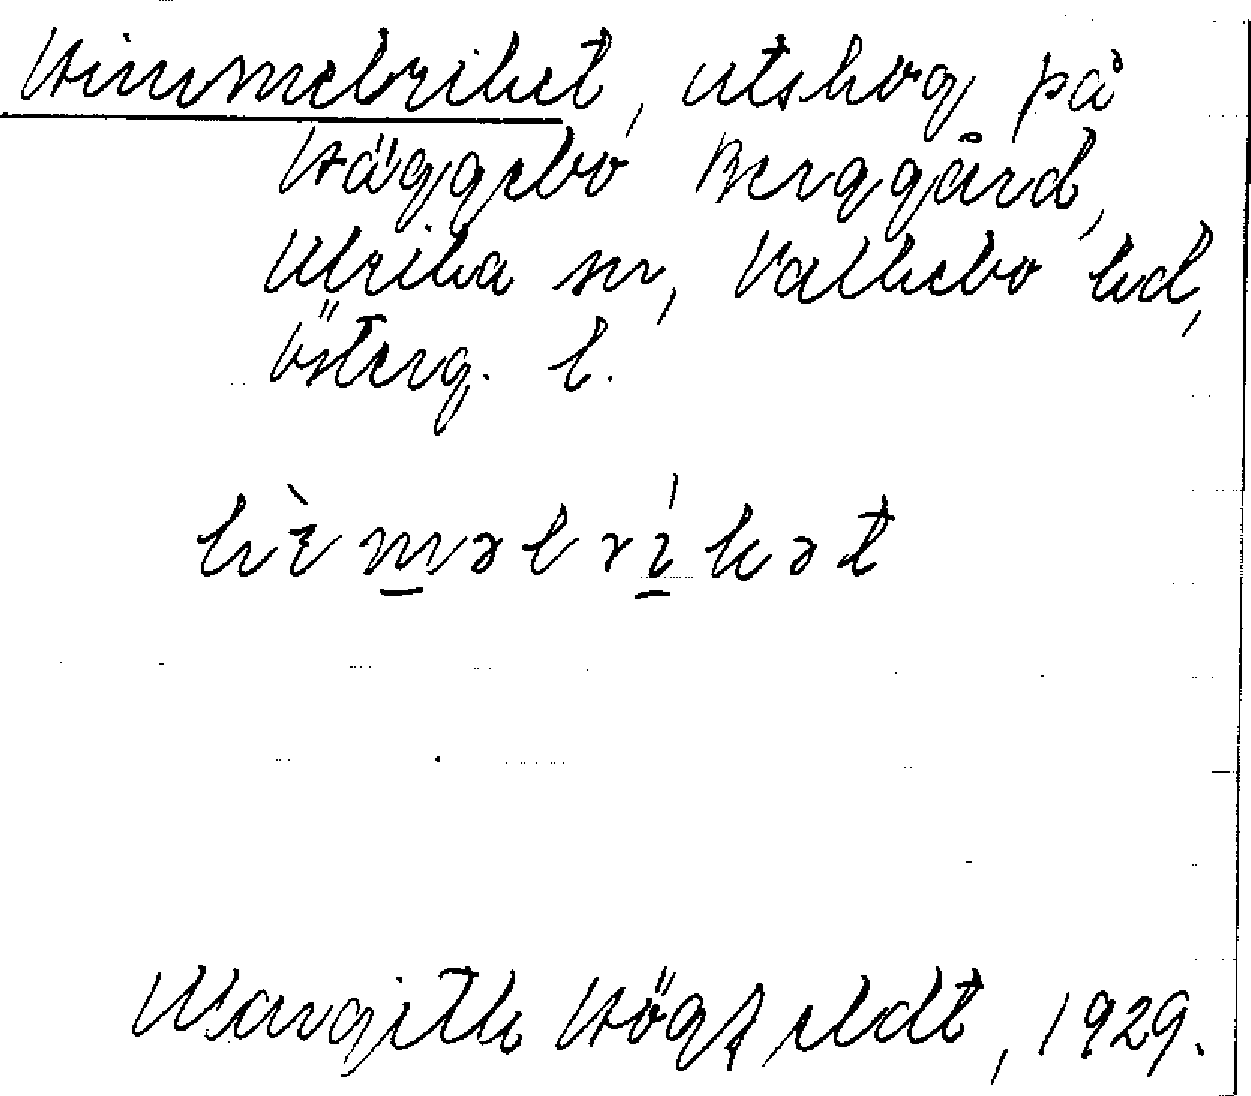 Himmelriket, utskog på
Häggebo Berggård,
Ulrika sn, Valkebo hd,
Österg. l.
hɪ̀m̲əlrí̲kət
Margith Högfeldt, 1929.